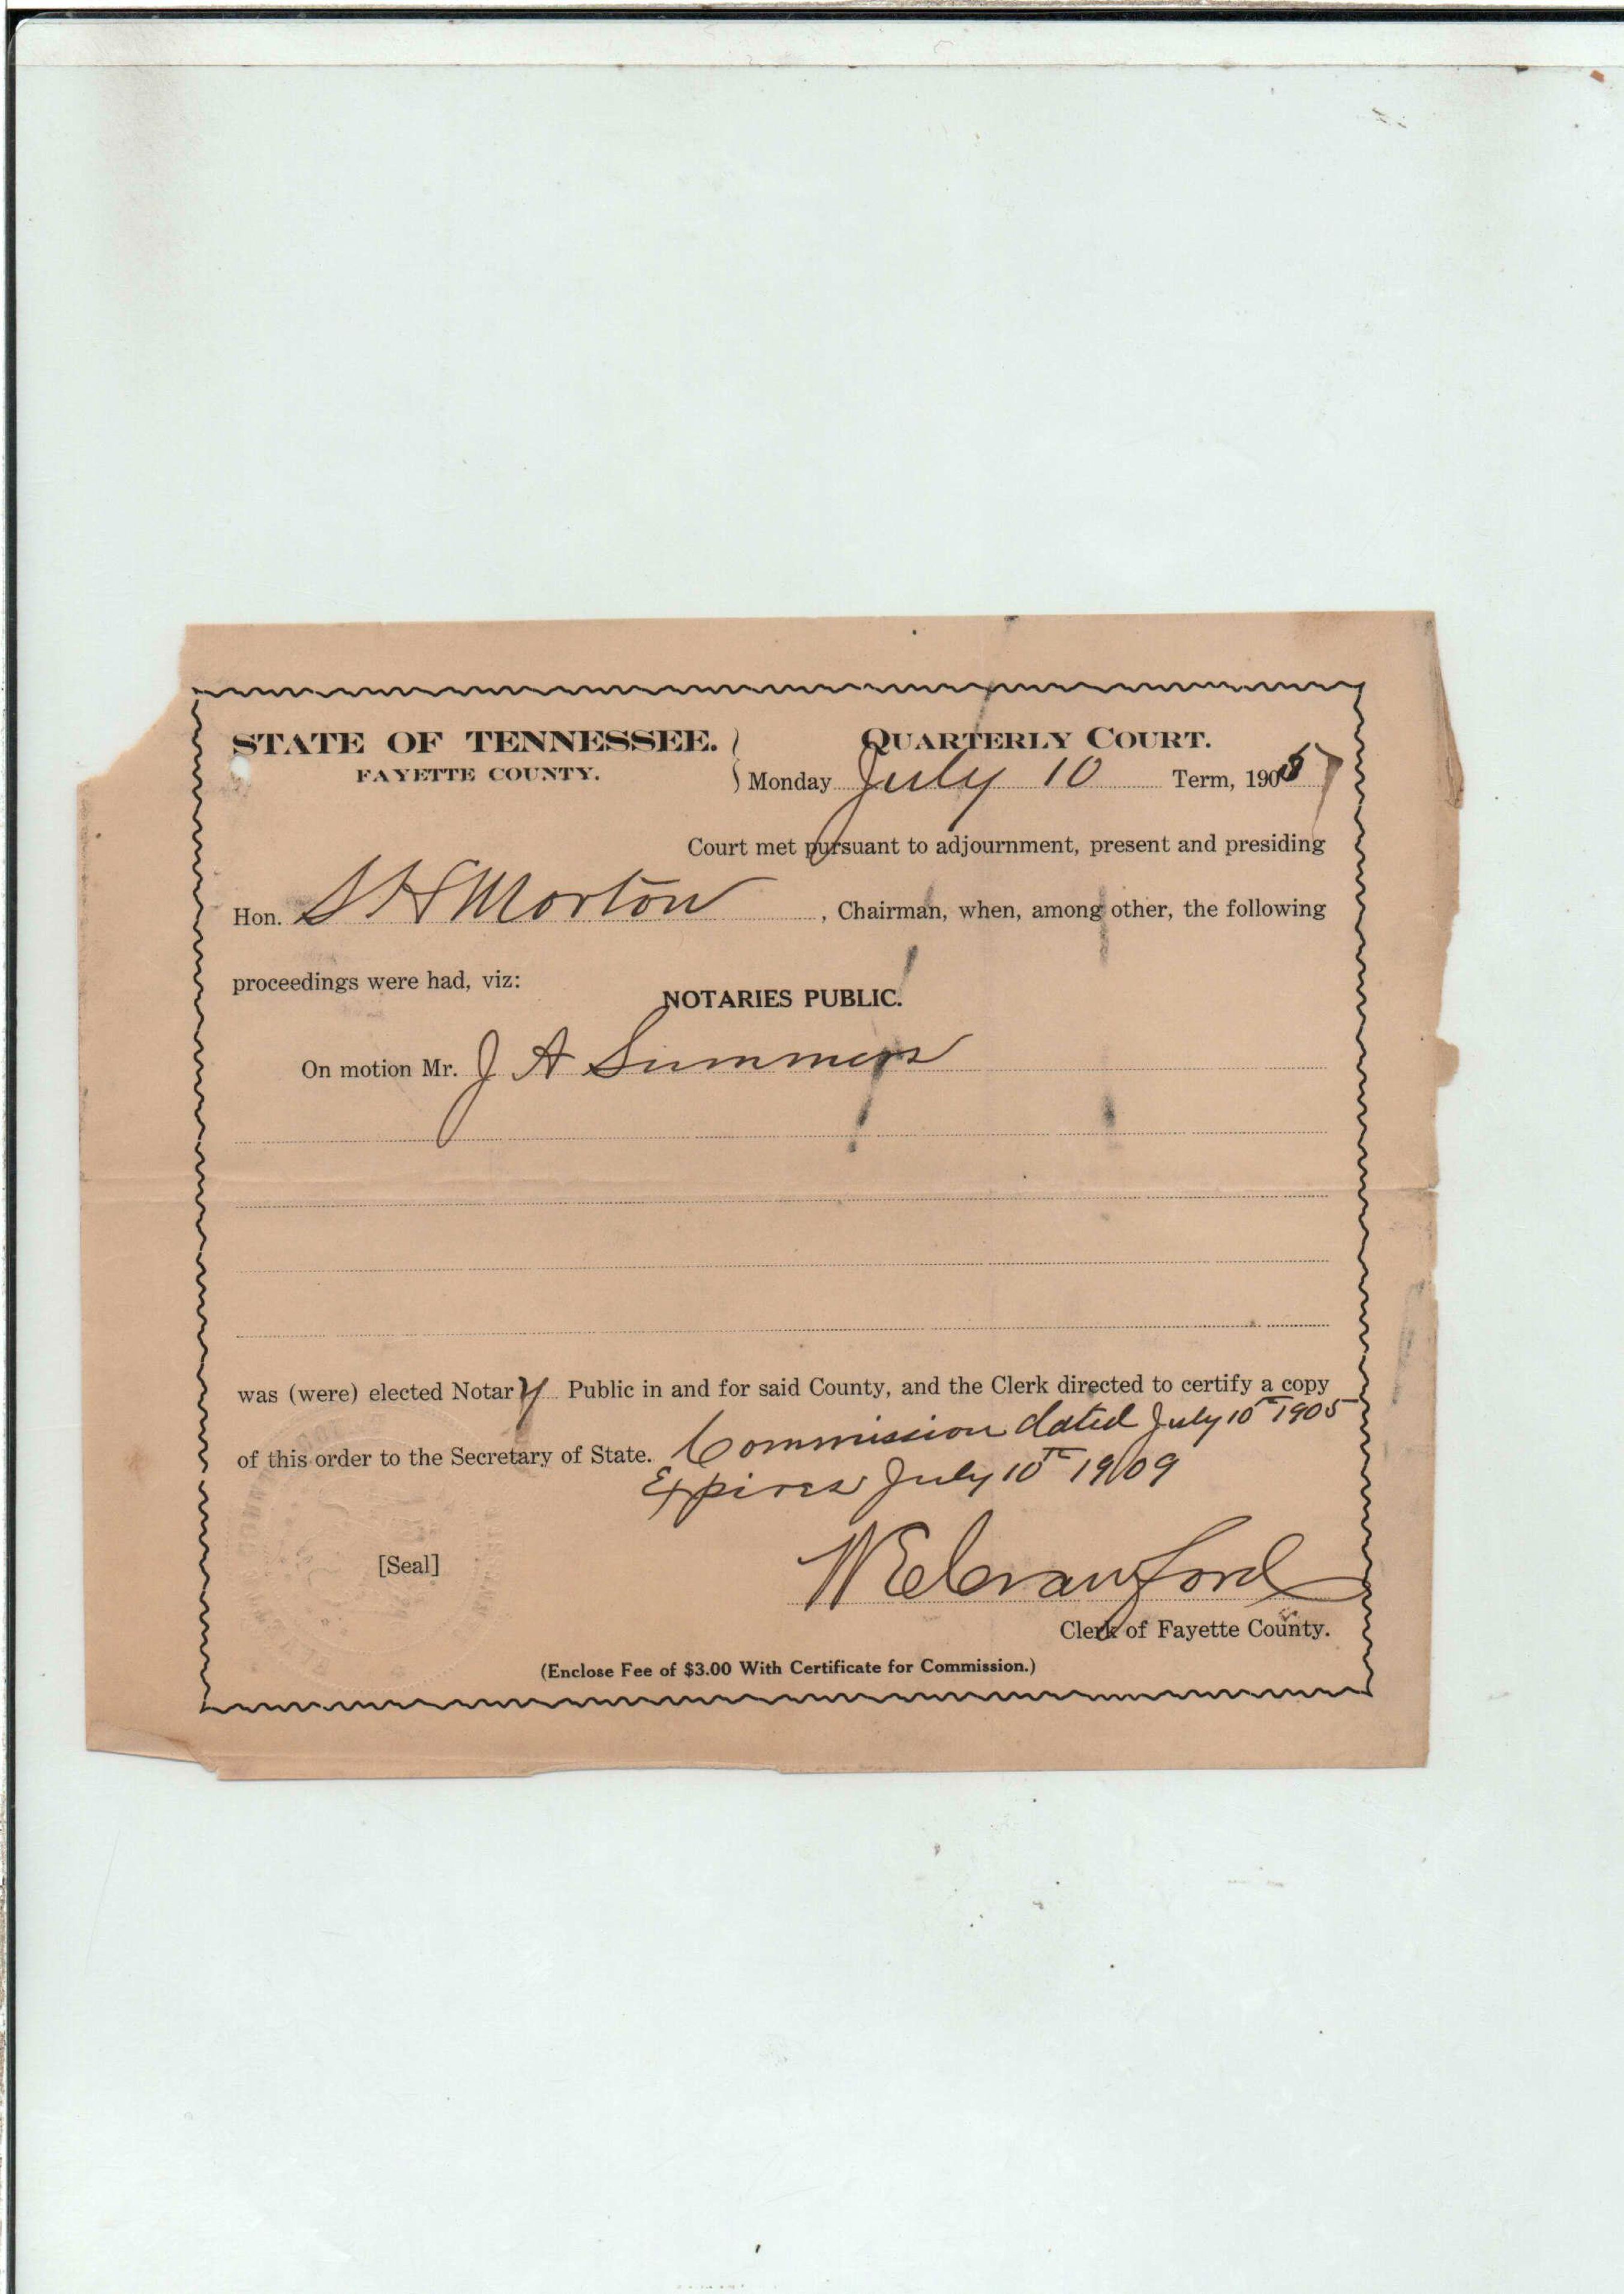 STATE OF TENNESSEE. QUARTERLY COURT.
FAYETTE COUNTY. Monday July 10 Term, 1905
Court met pursuant to adjournment, present and presiding
Hon. S H Morton, Chairman, when, among other, the following
proceedings were had, viz:
NOTARIES PUBLIC.
On motion Mr. J A Summers
was (were) elected Notary Public in and for said County, and the Clerk directed to certify a copy
of this order to the Secretary of State. Commission dated July 10th 1905
Expires July 10th 1909
[Seal]
W E Crawford
Clerk of Fayette County.
(Enclose Fee of $3.00 With Certificate for Commission.)